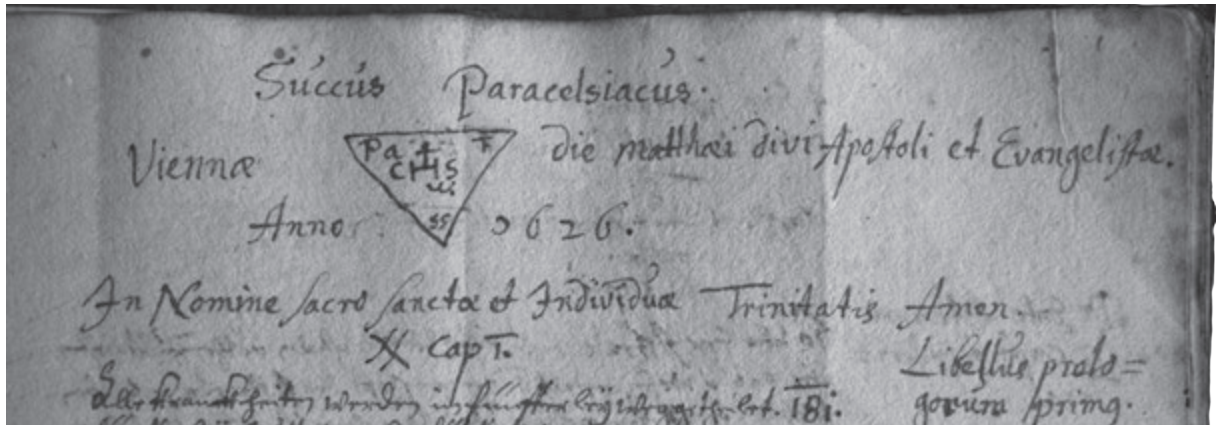 Succus Paracelsiacus.
Viennæ die Matthæi divi Apostoli et Evangelistæ.
Anno 1626.
In Nomine sacro sanctæ et Individuæ Trinitatis Amen.
Cap I.
Libellus prolo=
Alle kranckheiten werden in fünfferleÿ
gorum primq.